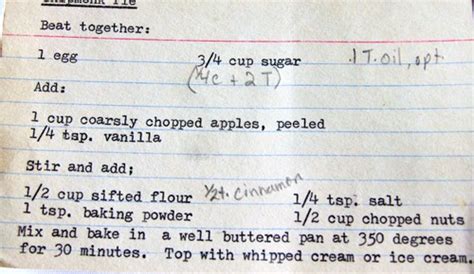 Chipmunk Pie
Beat together:
1 egg 3/4 cup sugar 1 T. oil, opt.
(1/4c + 2T)
Add:
1 cup coarsly chopped apples, peeled
1/4 tsp. vanilla
Stir and add;
1/2 cup sifted flour 1/2t. cinnamon 1/4 tsp. salt
1 tsp. baking powder 1/2 cup chopped nuts
Mix and bake in a well buttered pan at 350 degrees
for 30 minutes. Top with whipped cream or ice cream.